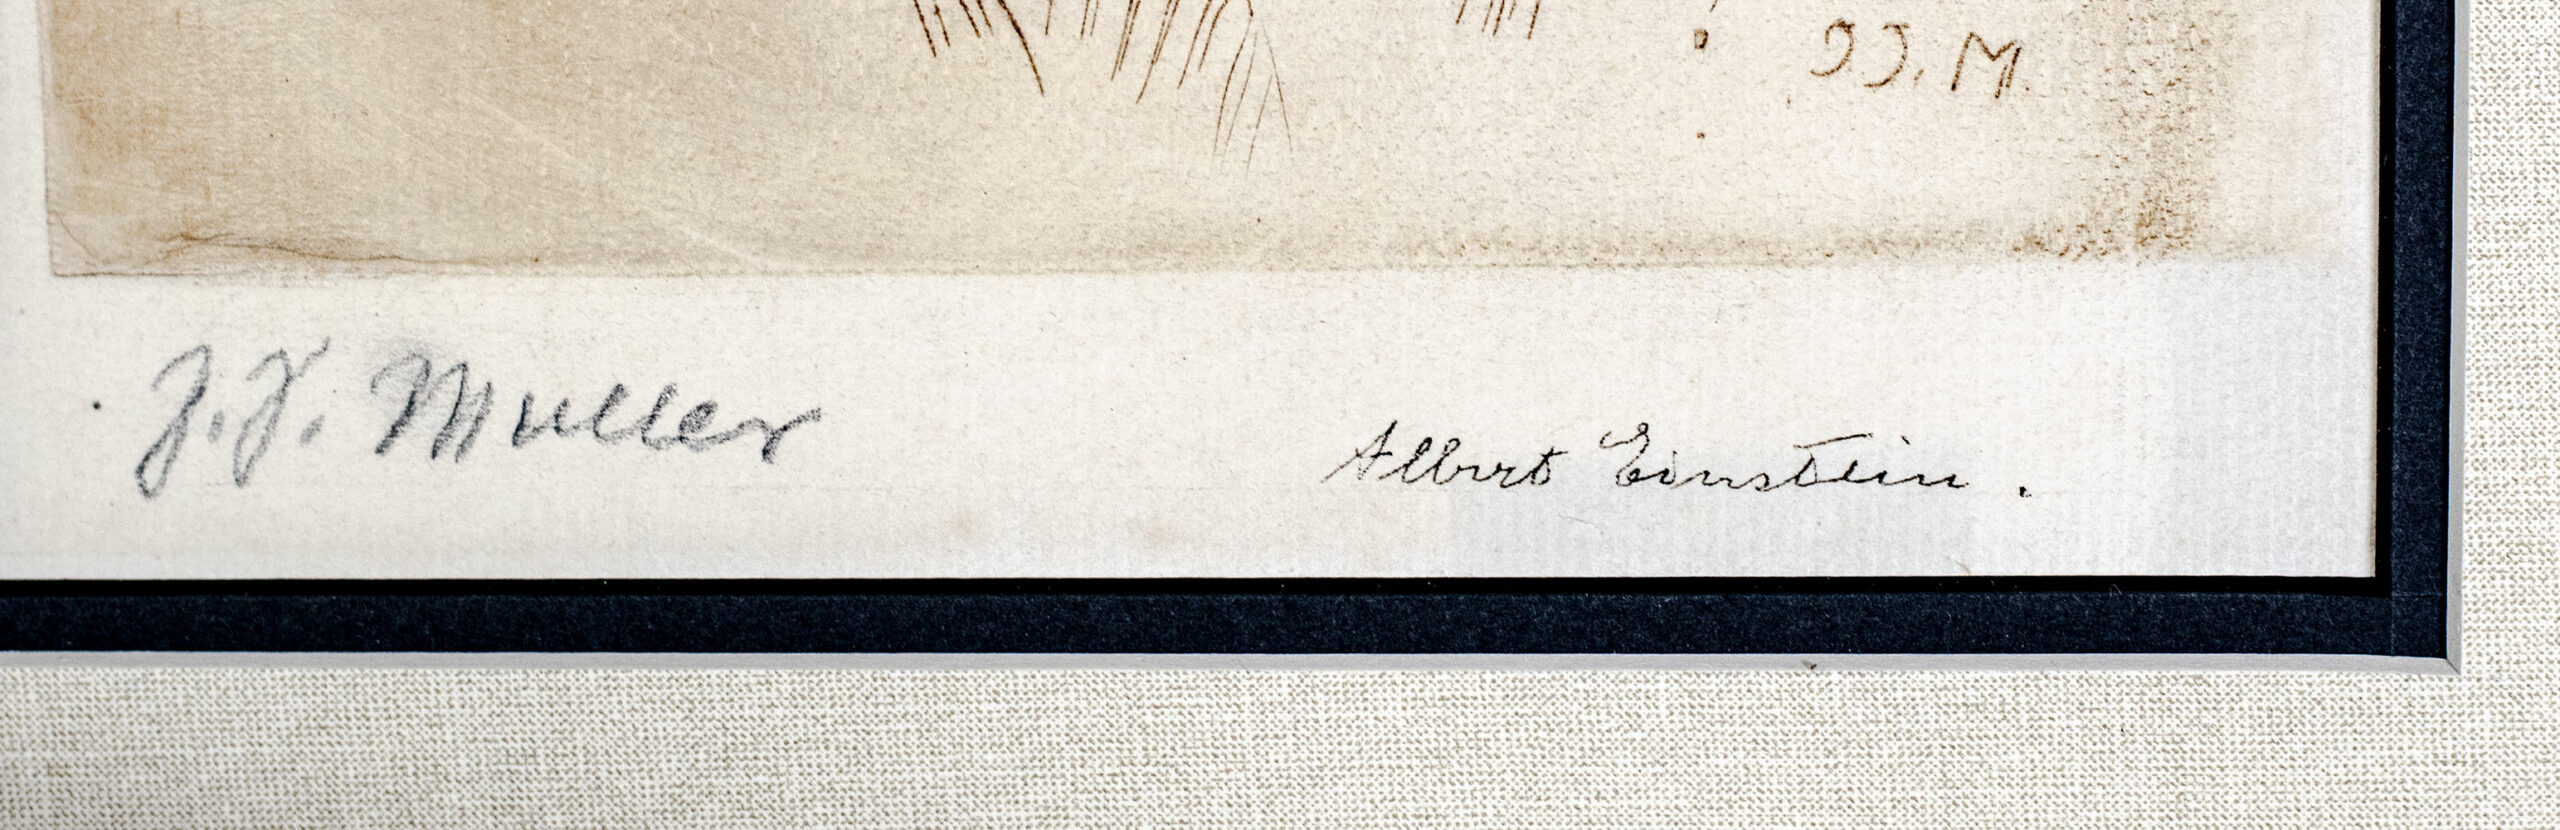 J.J. M.
J. J. Muller
Albert Einstein.